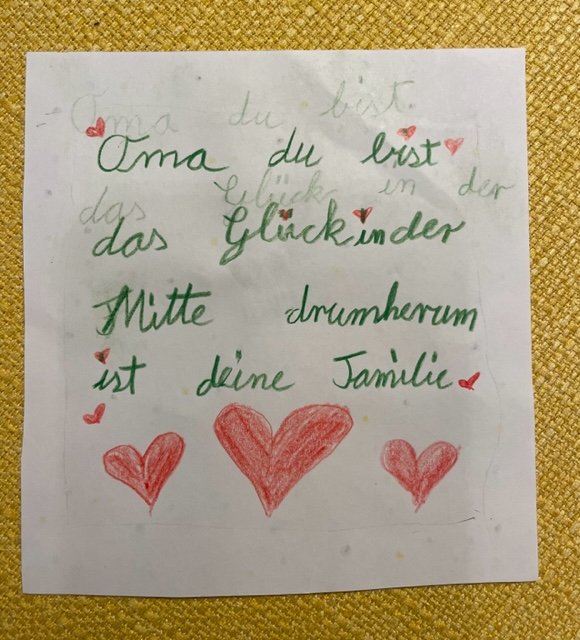 Oma du bist
Oma du bist
das Glück in der
das Glück in der
Mitte drumherum
ist deine Familie